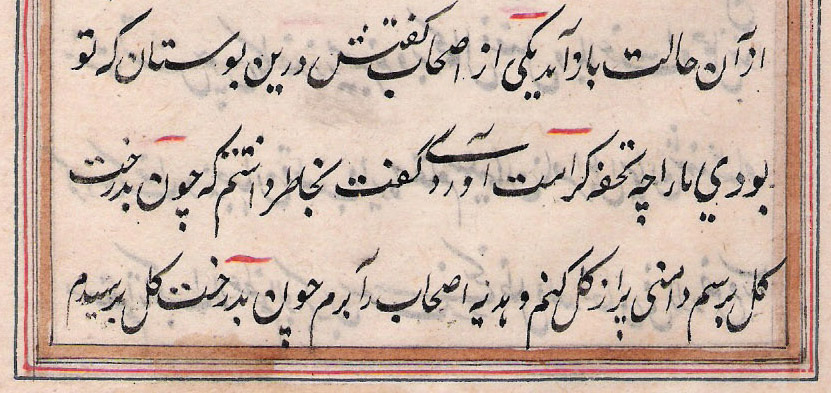 از آن حالت باز آمد یکی از اصحاب گفتش درین بوستان که تو
بودی ما را چه تحفه کرامت آوردی گفت بخاطر داشتم که چون بدرخت
گل برسم دامنی پر از گل کنم و هدیه اصحاب را برم چون بدرخت گل برسیدم